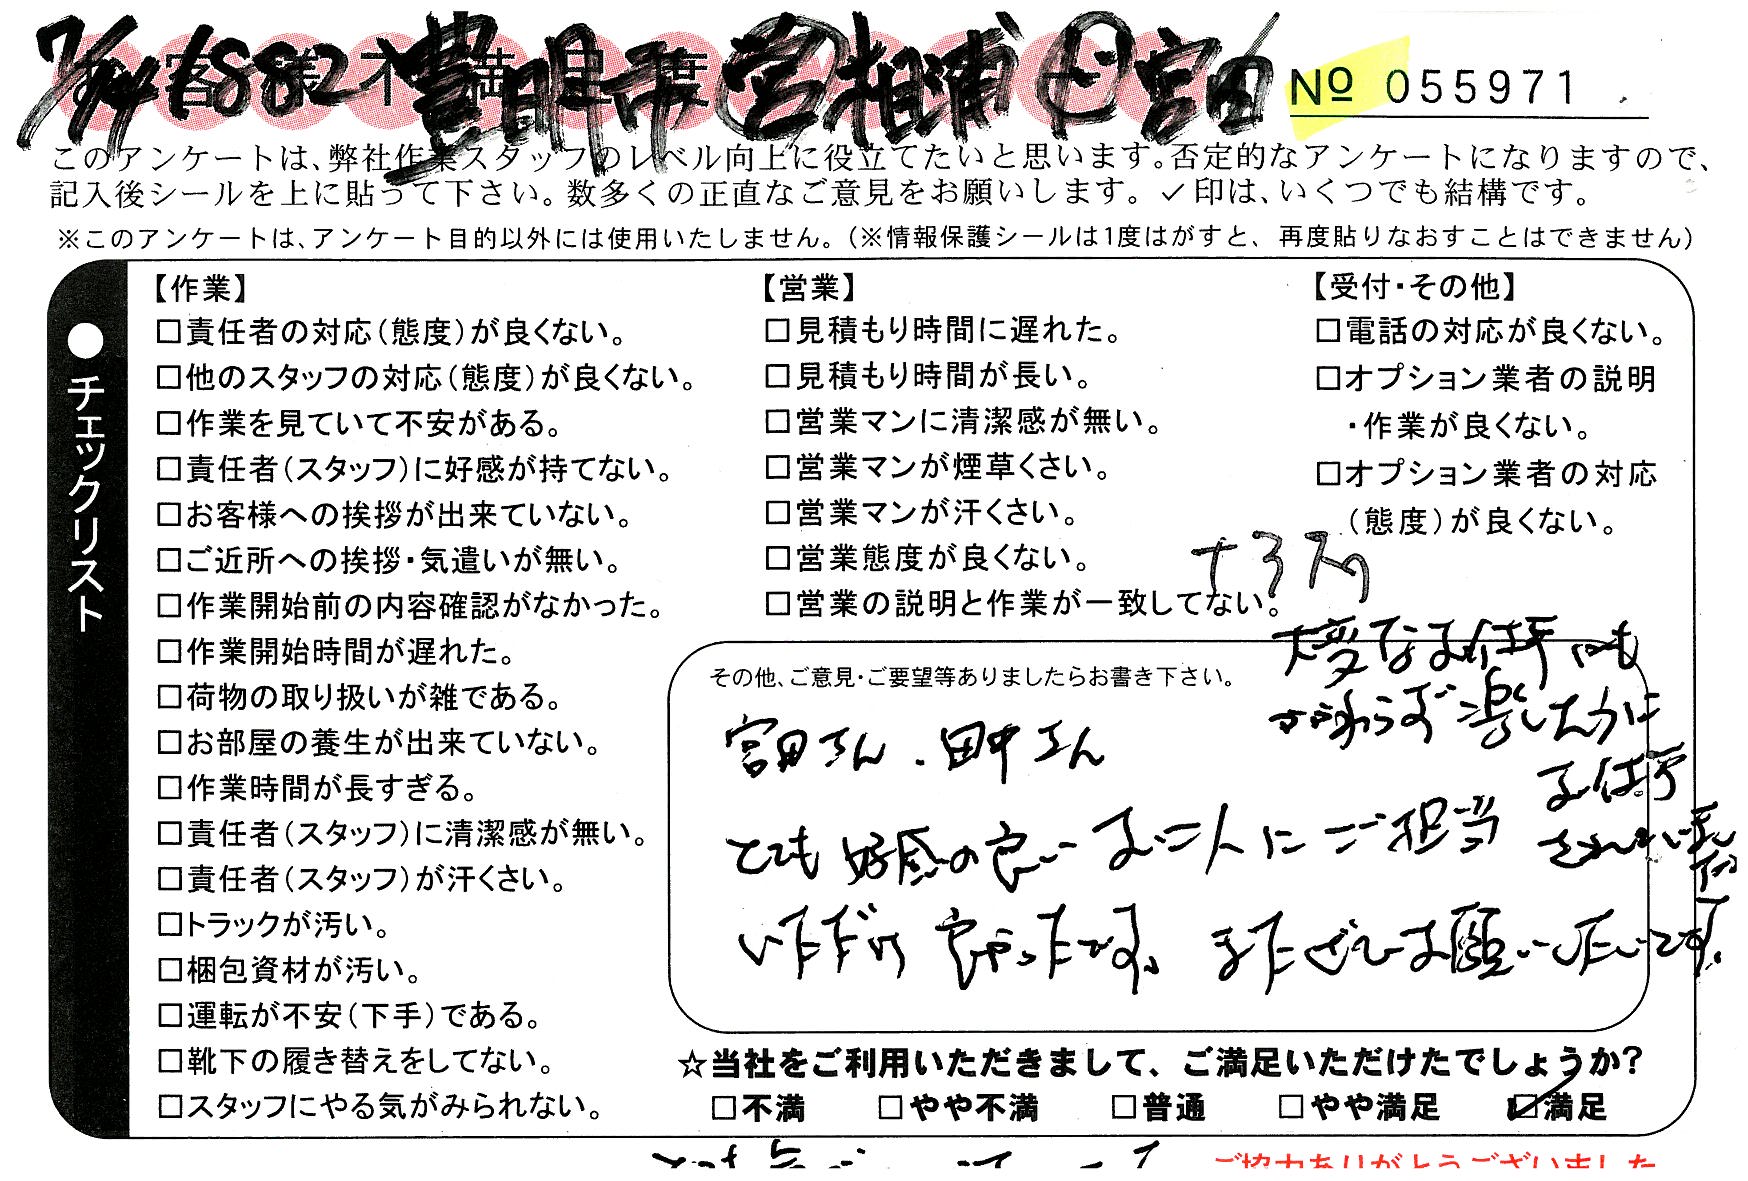 7/14 6882 豊明市 営 相浦 作 宮田
お客様不満足度
No 055971
このアンケートは、弊社作業スタッフのレベル向上に役立てたいと思います。否定的なアンケートになりますので、
記入後シールを上に貼って下さい。数多くの正直なご意見をお願いします。✓印は、いくつでも結構です。
※このアンケートは、アンケート目的以外には使用いたしません。(※情報保護シールは1度はがすと、再度貼りなおすことはできません)
●チェックリスト
【作業】
□責任者の対応(態度)が良くない。
□他のスタッフの対応(態度)が良くない。
□作業を見ていて不安がある。
□責任者(スタッフ)に好感が持てない。
□お客様への挨拶が出来ていない。
□ご近所への挨拶・気遣いが無い。
□作業開始前の内容確認がなかった。
□作業開始時間が遅れた。
□荷物の取り扱いが雑である。
□お部屋の養生が出来ていない。
□作業時間が長すぎる。
□責任者(スタッフ)に清潔感が無い。
□責任者(スタッフ)が汗くさい。
□トラックが汚い。
□梱包資材が汚い。
□運転が不安(下手)である。
□靴下の履き替えをしてない。
□スタッフにやる気がみられない。
【営業】
□見積もり時間に遅れた。
□見積もり時間が長い。
□営業マンに清潔感が無い。
□営業マンが煙草くさい。
□営業マンが汗くさい。
□営業態度が良くない。
□営業の説明と作業が一致してない。
【受付・その他】
□電話の対応が良くない。
□オプション業者の説明
・作業が良くない。
□オプション業者の対応
(態度)が良くない。
その他、ご意見・ご要望等ありましたらお書き下さい。
宮田さん、田中さん
とても好感の良いお二人にご担当
いただけ良かったです。またぜひお願いしたいです。
大変なお仕事にも
かかわらず楽したかに
お仕事
されて
☆当社をご利用いただきまして、ご満足いただけたでしょうか?
□不満 □やや不満 □普通 □やや満足 ☑満足
ご協力ありがとうございました